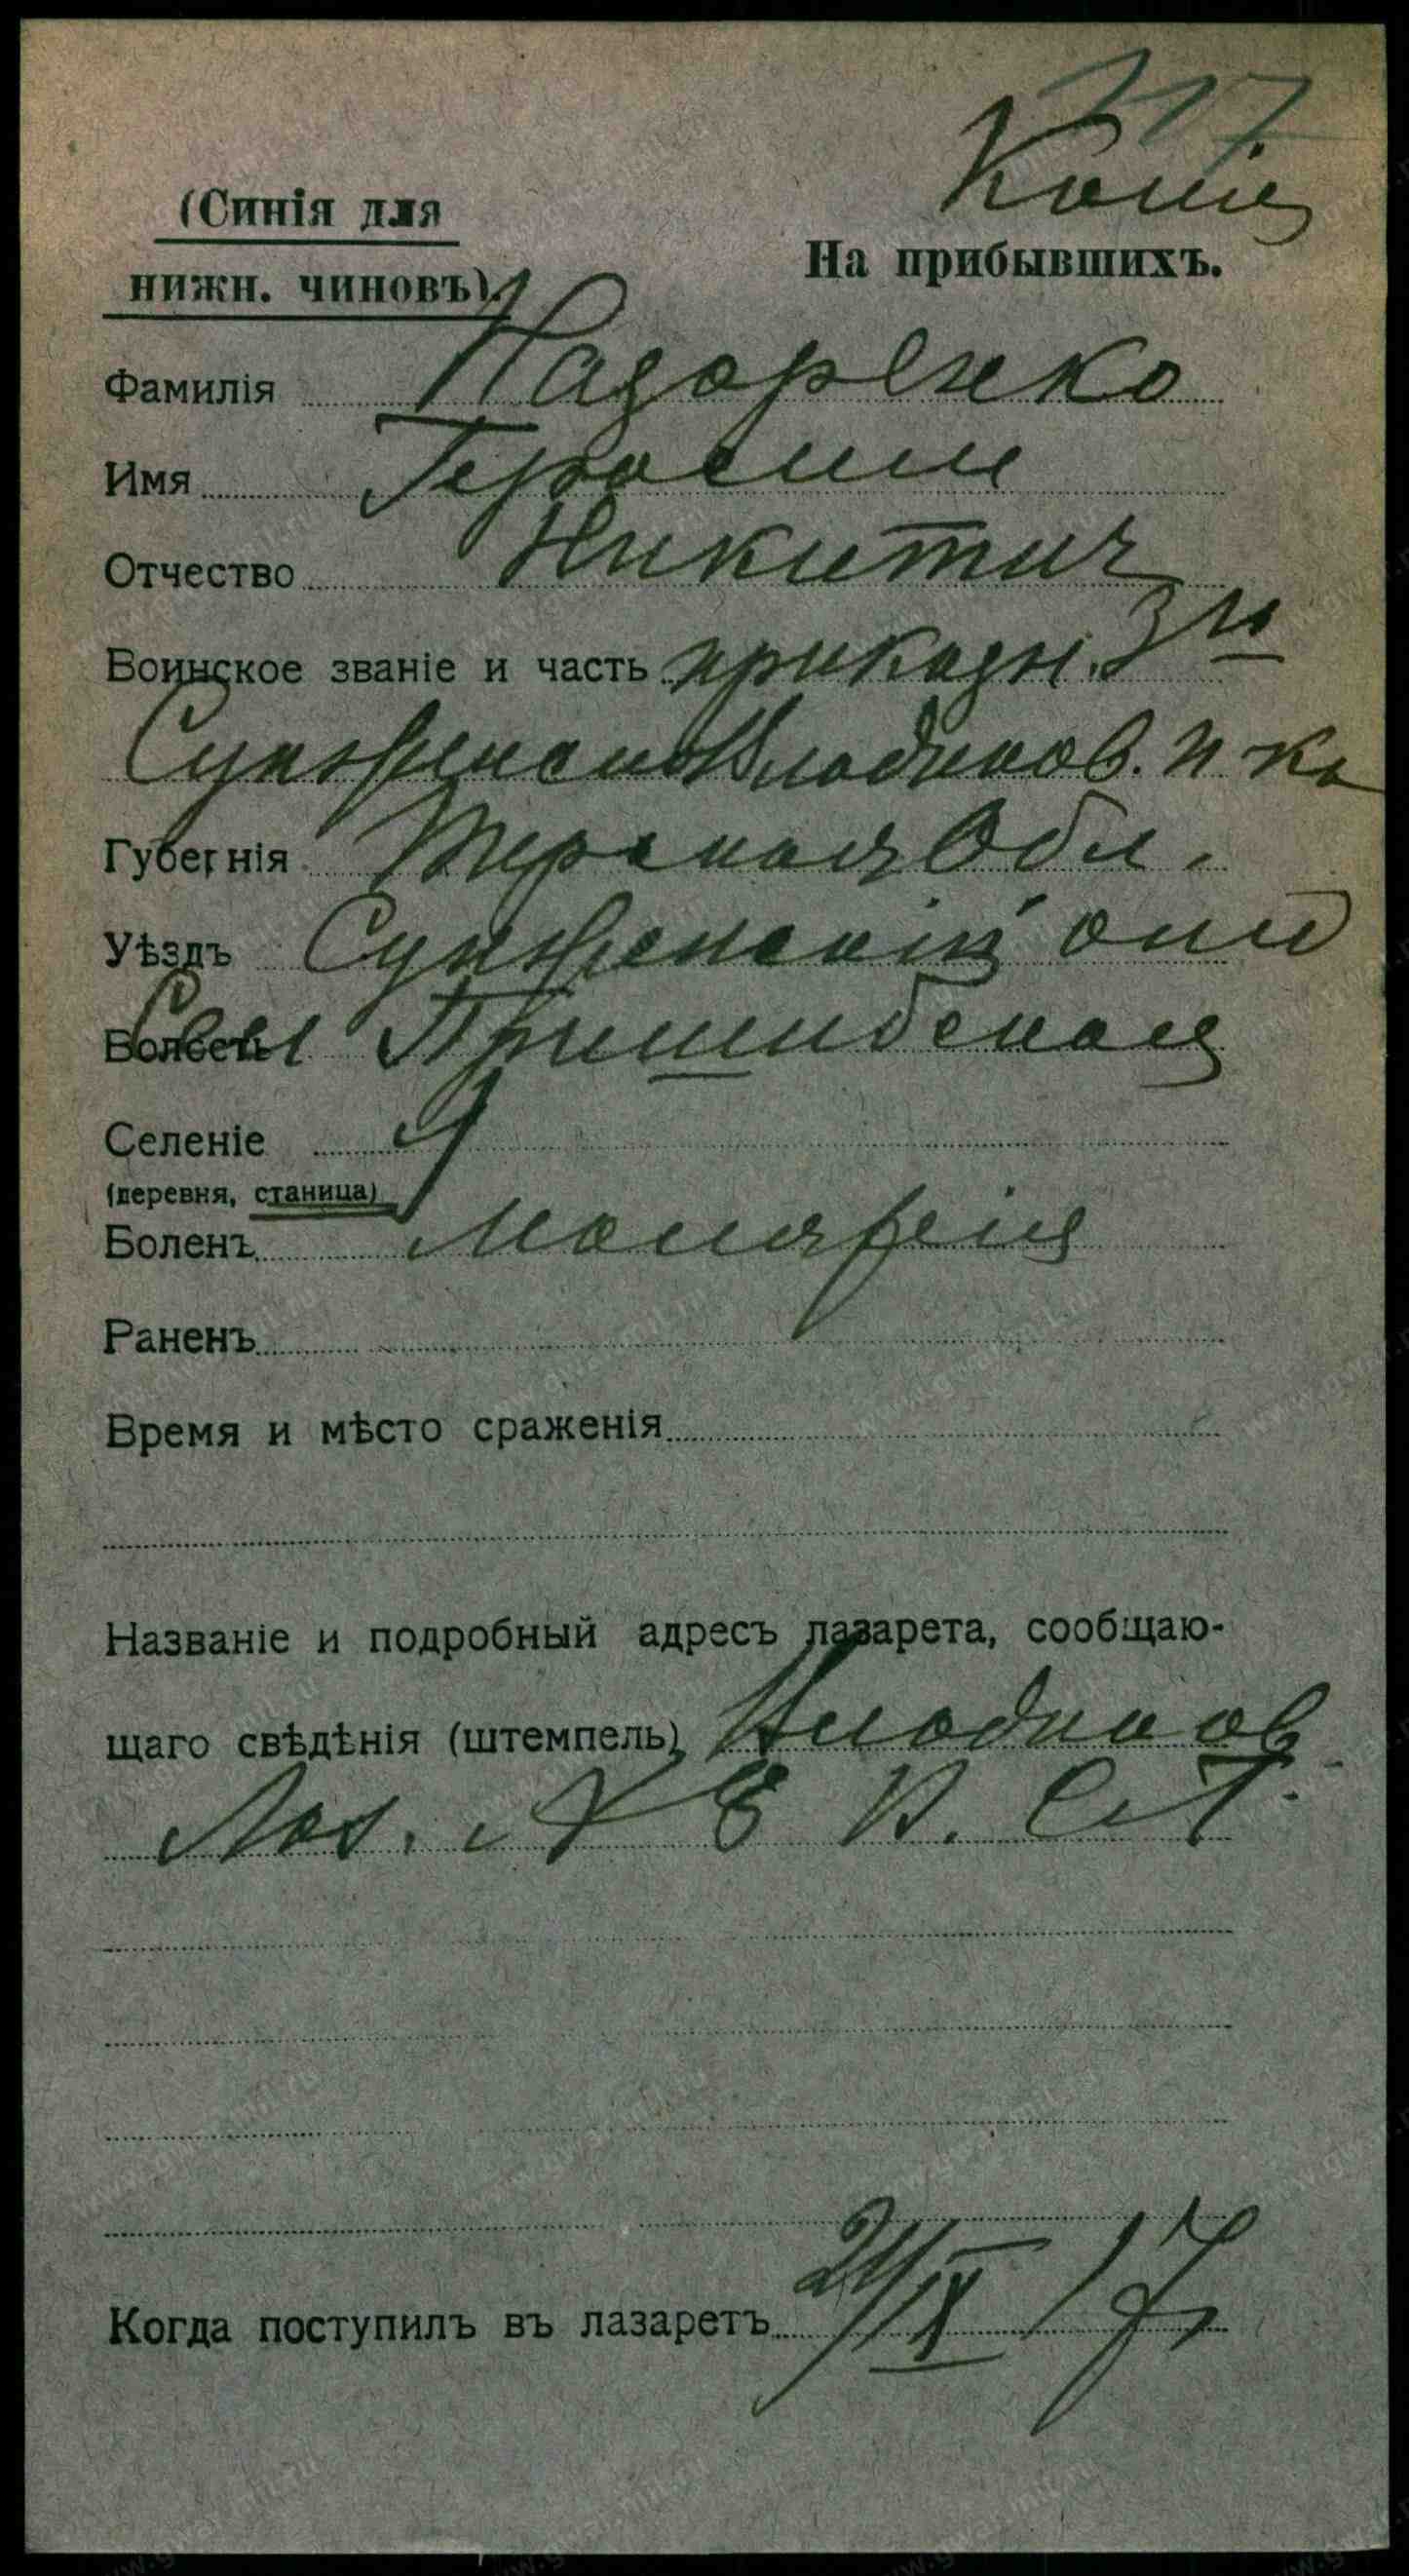 317
Копія
(Синія для
На прибывшихъ.
нижн. чиновъ).
Фамилія Назаренко
Имя Герасим
Отчество Никитич
Воинское званіе и часть приказн. 3го
Сунженско Владикав. п ка
Губернія Терская Обл.
Уѣздъ Сунженскій отд
Волость Слы Пришибская
Селеніе
(деревня, станица)
Боленъ Малярія
Раненъ
Время и мѣсто сраженія
Названіе и подробный адресъ лазарета, сообщаю-
щаго свѣдѣнія (штемпель) Владикав
Лаз.
Когда поступилъ въ лазаретъ 24/IX 17